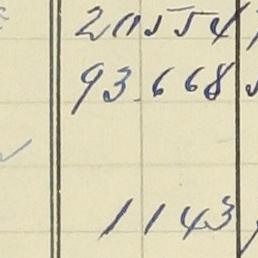 20554
93668
1143